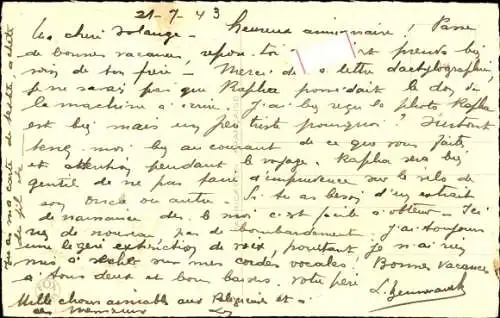 21-7-43
Ma chère Solange - Heureux anniversaire! Passe
de bonnes vacances, repose-toi et prends bien
soin de ton frère - Merci de la lettre dactylographiée
je ne savais pas que Rapha possédait le don de
la machine à écrire. J'ai bien reçu la photo Rapha
est bien mais un peu triste pourquoi? Surtout
tenez moi bien au courant de ce que vous faites
et attention pendant le voyage. Rapha sera bien
gentil de ne pas faire d'imprudence sur le vélo de
son oncle ou autre. Si tu as besoin d'un extrait
de naissance dis le moi c'est facile à obtenir - Ici
rien de nouveau pas de bombardement. J'ai toujours
une légère extinction de voix, pourtant je n'ai rien
mis à sécher sur mes cordes vocales. Bonnes vacances
à tous deux et bons baisers. votre père
Mille choses aimables aux et à
ces messieurs